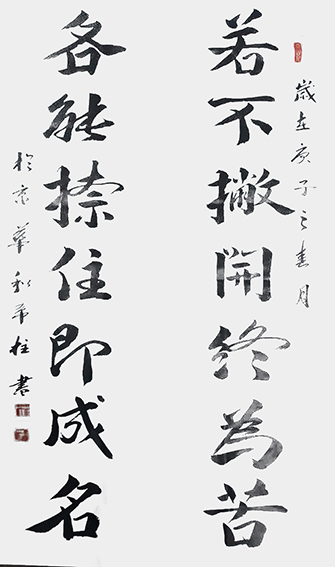 歲在庚子之春月
若不撇開終為苦
各能捺住即成名
於京華柱書